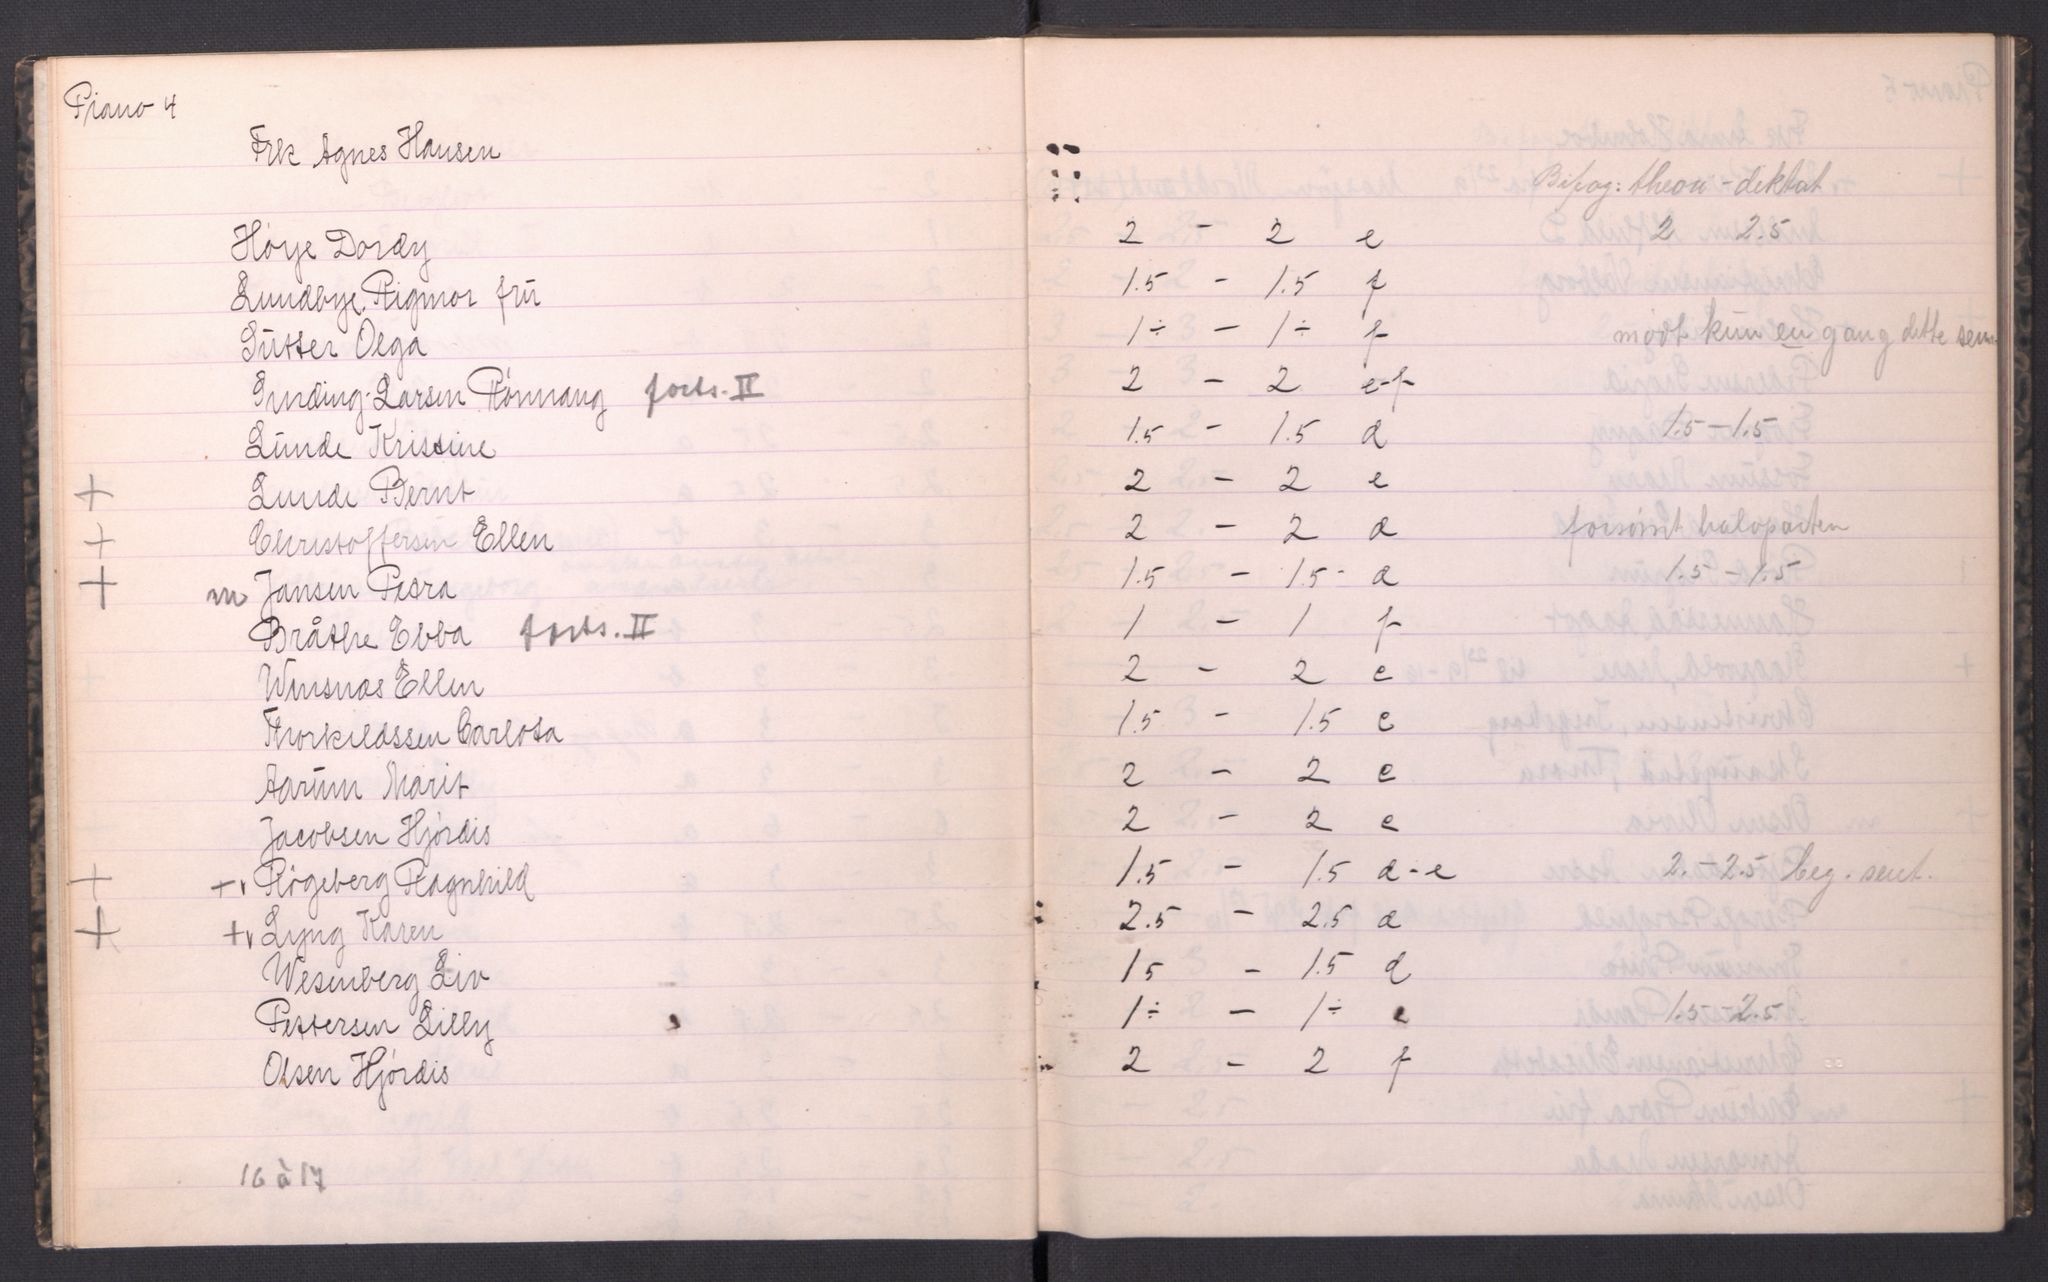 Piano 4
Frk Agnes Hansen
Bifag: theori - diktat
Höye Dordy 2 - 2 e 2 2.5
Lundbye, Rigmor frü 1.5 - 1.5 f
Sütter Olga 1÷ - 1÷ f mødt kun en gang dette sem.
Sinding-Larsen Rönnaug forts. II 2 - 2 e-f
Lünde Kristine 1.5 - 1.5 d 1.5 - 1.5
+ Lunde Bernt 2 - 2 e
+ Christoffersen Ellen 2 - 2 d forsömt halvparten
+ m Jansen Petra 1.5 - 1.5 d 1.5 - 1.5
Bråthe Ebba forts. II 1 - 1 f
Winsnæs Ellen 2 - 2 e
Thorkildssen Carlota 1.5 - 1.5 e
Aarüm Marit 2 - 2 e
Jacobsen Hjördis 2 - 2 e
+ +v Rögeberg Ragnhild 1.5 - 1.5 d-e 2. - 2.5 beg. sent.
+ +v Lyng Karen 2.5 - 2.5 d
Wesenberg Liv 15 - 1.5 d
Pettersen Lilly 1÷ - 1÷ e 1.5 - 2.5
Olsen Hjördis 2 - 2 f
16 à 17